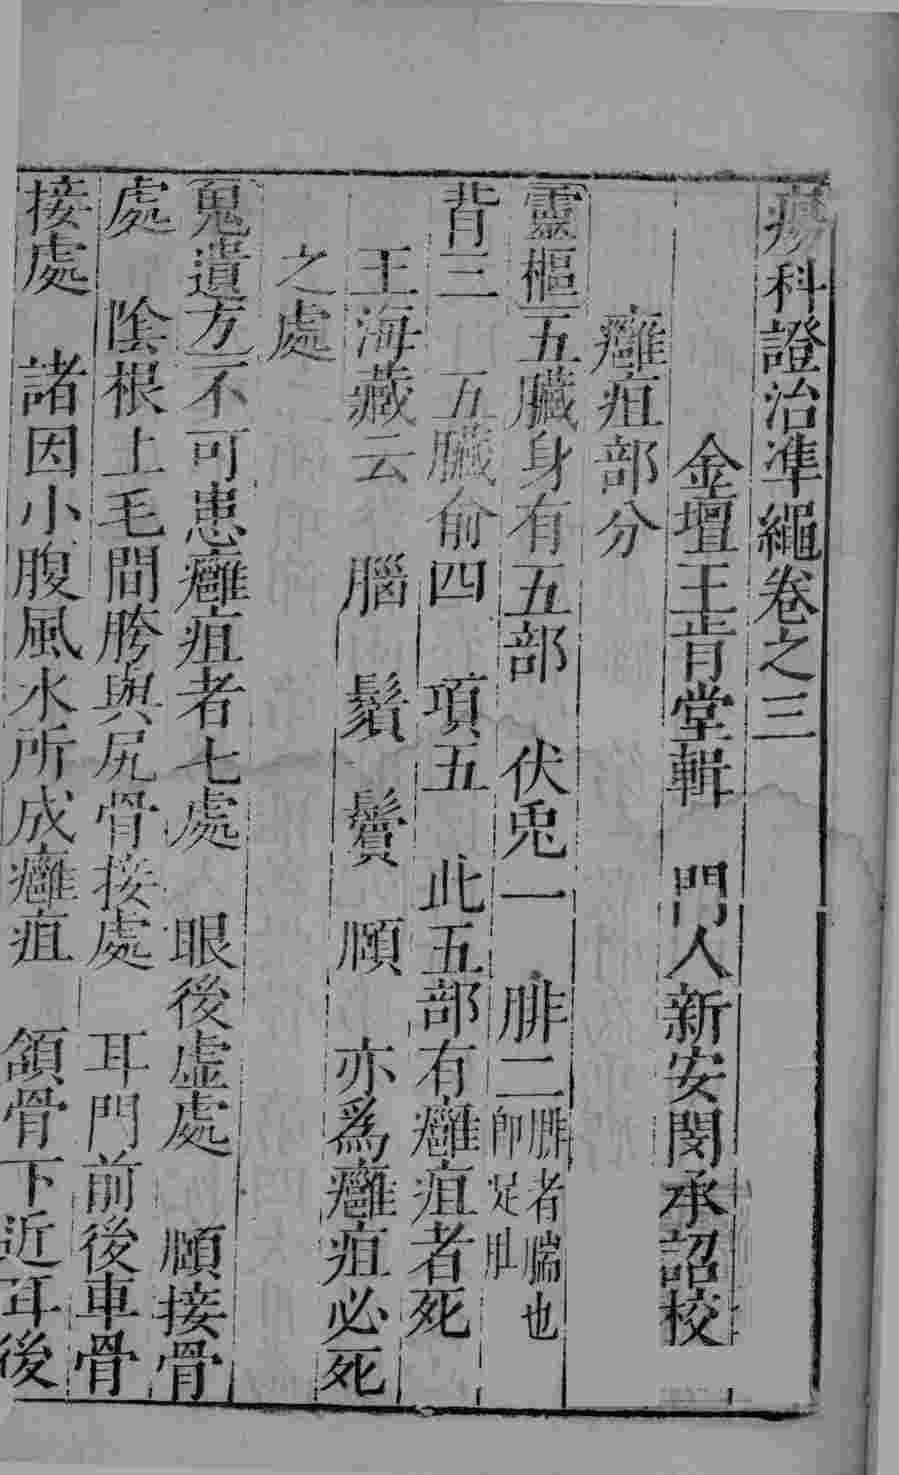 瘍科證治準繩卷之三
金壇王肯堂輯　門人新安閔承詔校
癰疽部分
靈樞五臟身有五部　伏兎一　腓二腓者腨也即足肚
背三　五臟俞四　項五　此五部有癰疽者死
王海藏云　腦　鬚　鬢　頤　亦爲癰疽必死
之處
鬼遺方不可患癰疽者七處　眼後虛處　頤接骨
處　陰根上毛間胯與尻骨接處　耳門前後車骨
接處　諸因小腹風水所成癰疽　頷骨下近耳後